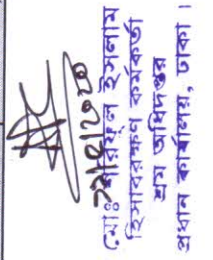 মোঃ শরিফুল ইসলাম
হিসাবরক্ষণ কর্মকর্তা
শ্রম অধিদপ্তর
প্রধান কার্যালয়, ঢাকা।